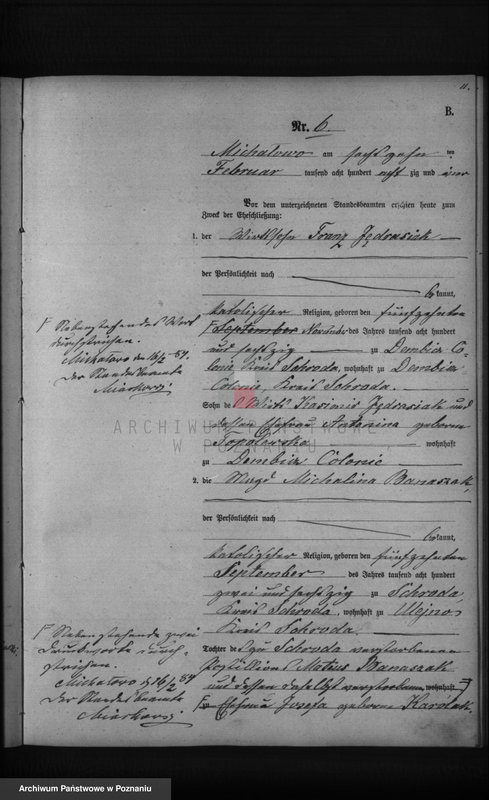 11.
B.
Nr. 6.
Michalowo am sechszehn ten
Februar tausend acht hundert acht zig und vier
Vor dem unterzeichneten Standesbeamten erschien heute zum
Zweck der Eheschließung:
1. der Wirthssohn Franz Jędrasiak
der Persönlichkeit nach
be kannt,
katolischer Religion, geboren den fünfzehnten
September November des Jahres tausend acht hundert
und sechszig zu Dembicz Co-
lonie Kreis Schroda, wohnhaft zu Dembicz
Colonie, Kreis Schroda.
Sohn des Wirts Kasimir Jędrasiak und
dessen Ehefrau Antonina geboren
Topolewska wohnhaft
zu Dembicz Colonie
2. die Magd Michalina Banaszak,
der Persönlichkeit nach
be kannt,
katolischer Religion, geboren den fünfzehnten
September des Jahres tausend acht hundert
zwei und sechszig zu Schroda
Kreis Schroda, wohnhaft zu Ulejno
Kreis Schroda
Tochter des zu Schroda verstorbenen
Matus Banaszak
und dessen daselbst verstorbenen wohnhaft
zu Ehefrau Josefa geborne Karolak.
Nebenstehendes Wort
durchstrichen.
Michalowo den 16/2 84.
Der Standesbeamte
Nebenstehende zwei
Druckworte durch-
strichen.
Michalowo 16/2 84
Der Standesbeamte
ARCHIWUM PAŃSTWOWE
W POZNANIU
Archiwum Państwowe w Poznaniu